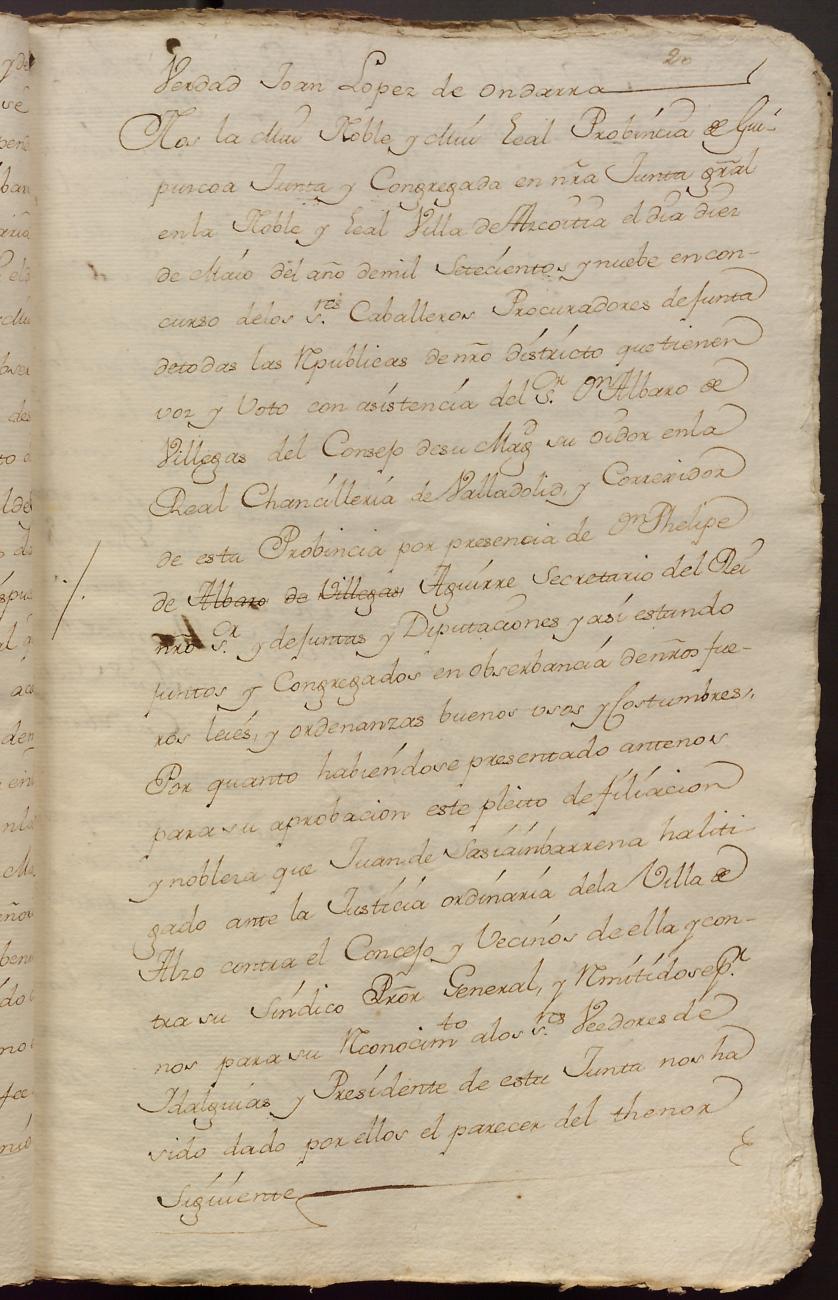 20
Verdad Joan Lopez de ondarra
Nos la Mui Noble y Mui Leal Probincia de Gui-
puzcoa Junta y Congregada en nrā Junta grāl
en la Noble y Leal Villa de Azcoitia el dia diez
de Maio del año de mil Setecientos y nuebe en con-
curso delos s.res Caballeros Procuradores de Junta
detodas las Republicas de nrō districto que tienen
voz y Voto con asistencia del s.r Dn Albaro de
Villegas del Consejo desu Magd su oidor en la
Real Chancilleria de Valladolid, y Correxidor
de esta Probincia por presencia de Dn Phelipe
de Albaro de Villegas Aguirre Secretario del Rei
nrō s.r y deJuntas y Diputaciones y asi estando
juntos y Congregados en obserbancia de nrōs fue-
ros leiés, y ordenanzas buenos usos y Costumbres,
Por quanto habiendose presentado antenos
para su aprobacion este pleito de filiacion
y nobleza que Juan de Sasiainbarrena haliti-
gado ante la Justicia ordinaria dela Villa de
Alzo contra el Concejo y Vecinos de ella y con-
tra su Sindico Prōr General, y Remitidose p.r
nos para su Reconocimto alos s.res Veedores de
Idalguias y Presidente de esta Junta nos ha
sido dado por ellos el parecer del thenor
Siguiente